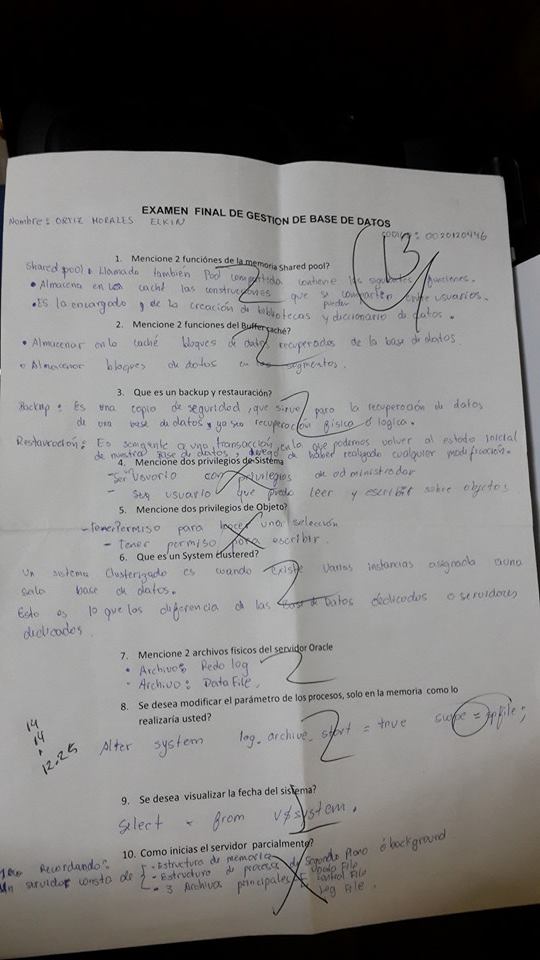 EXAMEN FINAL DE GESTION DE BASE DE DATOS
Nombre: ORTIZ MORALES ELKIN
CODIGO: 0020120446
13
1. Mencione 2 funciónes de la memoria Shared pool?
Shared pool: Llamado también Pool compartida contiene las siguientes funciones.
• Almacena en la caché las construcciones que se comparten entre usuarios.
pueden
• Es la encargado y de la creación de bibliotecas y diccionario de datos.
2
2. Mencione 2 funciones del Buffer caché?
• Almacenar en la caché bloques de datos recuperados de la base de datos.
• Almacenar bloques de datos en los segmentos.
2
3. Que es un backup y restauración?
Backup: Es una copia de seguridad, que sirve para la recuperación de datos
de una base de datos, ya sea recuperación física o lógica.
2
Restauración: Es semejante a una transacción, en la que podemos volver al estado inicial
de nuestra base de datos, luego de haber realizado cualquier modificación.
4. Mencione dos privilegios de Sistema
- Ser Usuario con privilegios de administrador
- Ser usuario que puede leer y escribir sobre objetos.
5. Mencione dos privilegios de Objeto?
- Tener Permiso para hacer una selección
- tener permiso para escribir.
6. Que es un System clustered?
Un sistema Clusterizado es cuando existe varias instancias asignada a una
sola base de datos.
Esto es lo que los diferencia de las Base de Datos dedicados o servidores
dedicados.
2
7. Mencione 2 archivos físicos del servidor Oracle
• Archivo: Redo log
• Archivo: Data File.
2
8. Se desea modificar el parámetro de los procesos, solo en la memoria como lo
realizaría usted?
Alter system log_archive_start = true scope = spfile;
2
14
14
12.25
9. Se desea visualizar la fecha del sistema?
Select * from v$system.
10. Como inicias el servidor parcialmente?
Recordando:
Un servidor consta de
- Estructura de memoria
- Estructura de proceso de Segundo Plano ó background
- 3 Archivos principales
File
Control File
Log File.